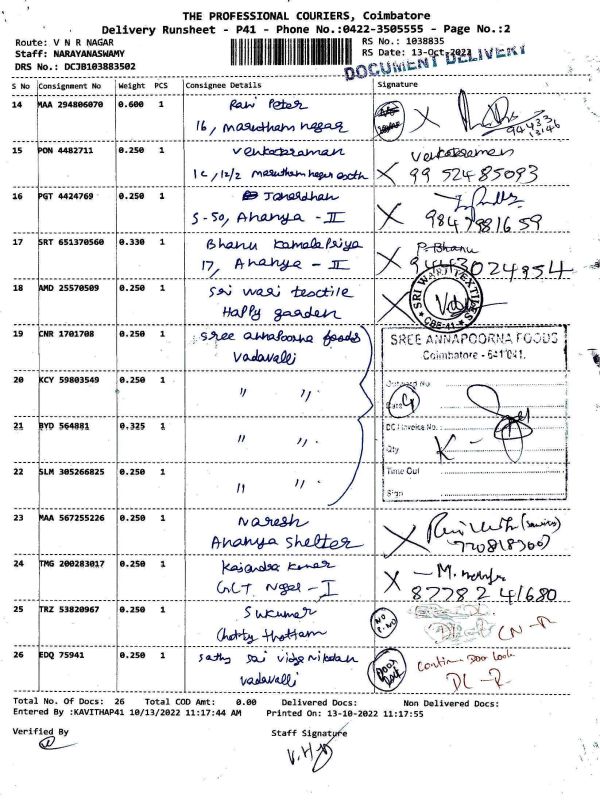 THE PROFESSIONAL COURIERS, Coimbatore
Delivery Runsheet - P41 - Phone No.:0422-3505555 - Page No.:2
Route: V N R NAGAR
RS No.: 1038835
Staff: NARAYANASWAMY
RS Date: 13-Oct-2022
DRS No.: DCJB103883502
DOCUMENT DELIVERY
S No Consignment No Weight PCS Consignee Details Signature
14 MAA 294806070 0.600 1 Ravi Peter
16, marutham nagar
94433
13146
15 PON 4482711 0.250 1 venkataraman venkataraman
1c, 12/2 marutham nagar south 99 524 85093
16 PGT 4424769 0.250 1 Janardhan
S-50, Ananya - II
17 SRT 651370560 0.330 1 Bhanu Kamala Priya P. Bhanu
17, Ananya - II 9443024854
18 AMD 25570509 0.250 1 sri wari textile
Happy garden
SRI WARI TEXTILES
CBE-41
19 CNR 1701708 0.250 1 sree annapoorna foods
vadavalli
SREE ANNAPOORNA FOODS
Coimbatore - 641 041.
20 KCY 59803549 0.250 1 " "
Date
21 BYD 564881 0.325 1 " "
DC / Invoice No. :
Qty
22 SLM 305266825 0.250 1 " "
Time Out
Sign
23 MAA 567255226 0.250 1 Naresh
Ananya shelter
24 TMG 200283017 0.250 1
GCT Nagar - I 87782 41680
25 TRZ 53820967 0.250 1 Sukumar
Chetty thottam
NO
P. NO
26 EDQ 75941 0.250 1 sathy sai vidya niketan
vadavalli
Door
Lock
DL - R
Total No. Of Docs: 26 Total COD Amt: 0.00 Delivered Docs: Non Delivered Docs:
Entered By :KAVITHAP41 10/13/2022 11:17:44 AM Printed On: 13-10-2022 11:17:55
Verified By Staff Signature